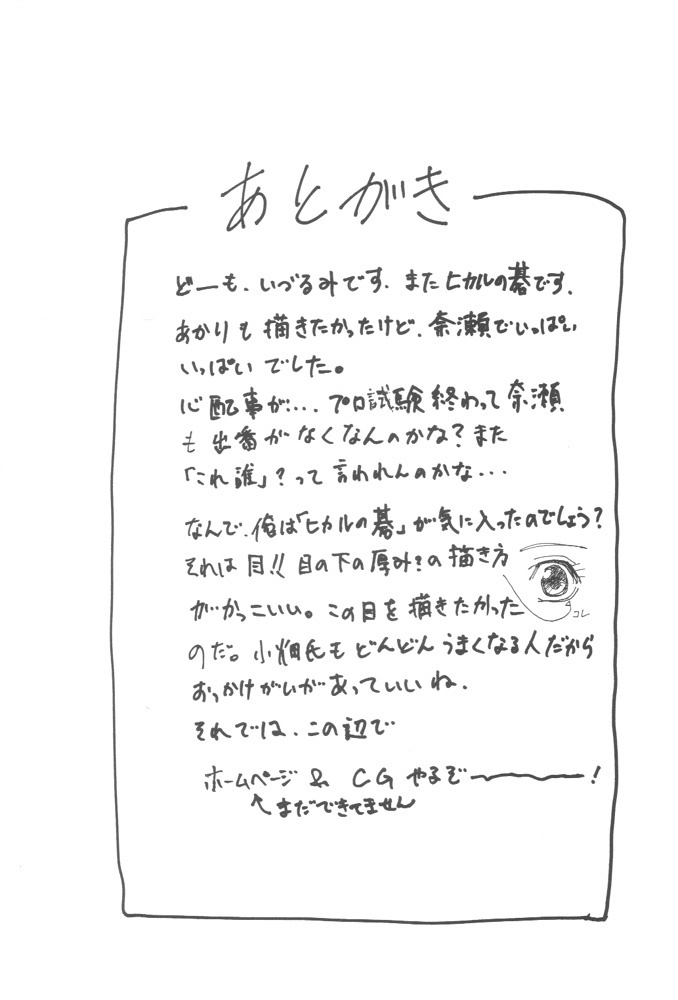 あとがき
どーも、いづるみです、またヒカルの碁です、
あかりも描きたかったけど、奈瀬でいっぱい
いっぱいでした。
心配事が... プロ試験終わって奈瀬
も出番がなくなんのかな?また
「これ誰」?って言われんのかな...
なんで、俺は「ヒカルの碁」が気に入ったのでしょう?
それは目!!目の下の厚み?の描き方
がかっこいい。この目を描きたかった
コレ
のだ。小畑氏もどんどんうまくなる人だから
おっかけがいがあっていいね、
それでは、この辺で
ホームページ & CG やるぞ――――!
↑まだできてません